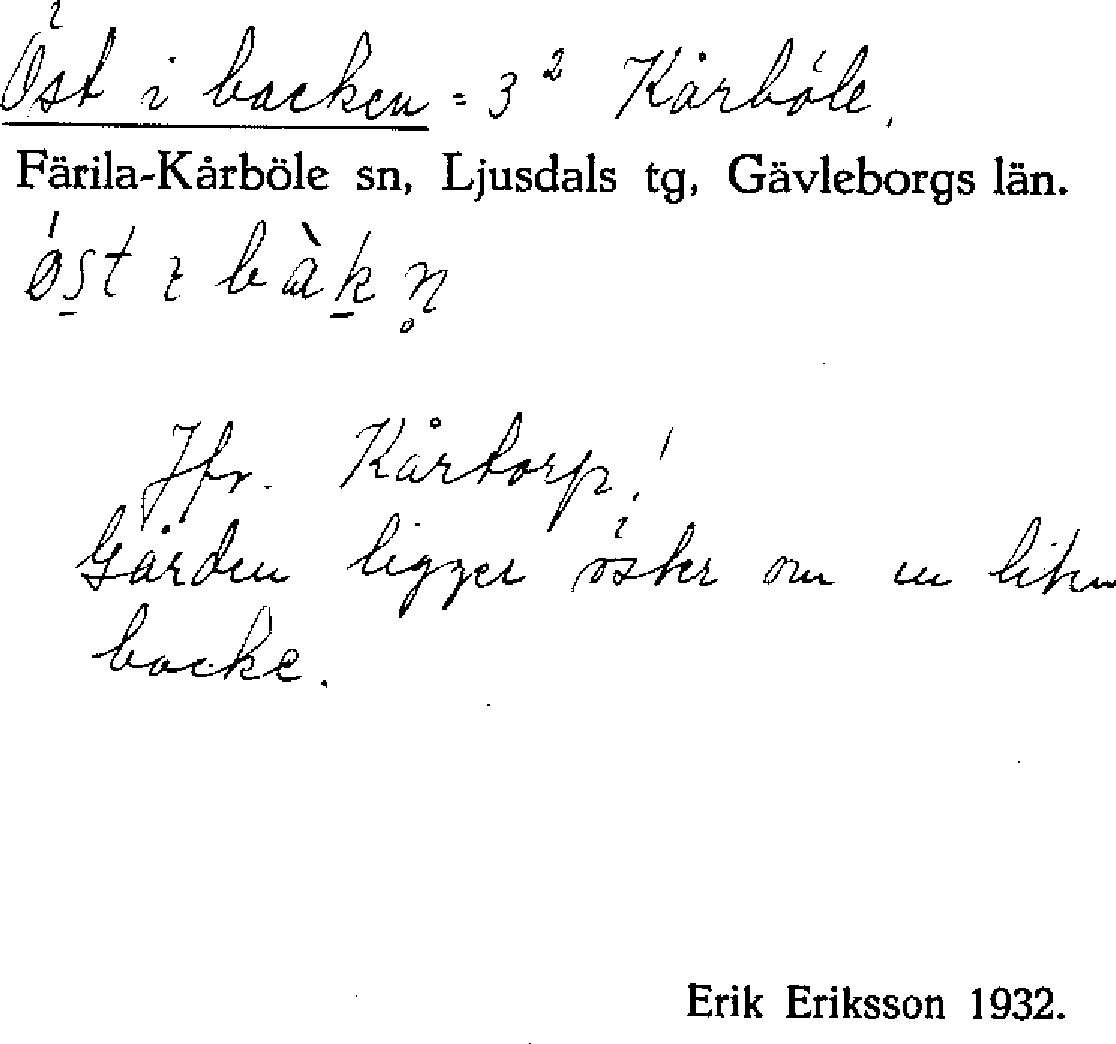 Öst i backen = 3² Kårböle.
Färila-Kårböle sn, Ljusdals tg, Gävleborgs län.
ǿst ɩ bàkn̥
Jfr. Kårtorp!
Gården ligger öster om en liten
backe.
Erik Eriksson 1932.